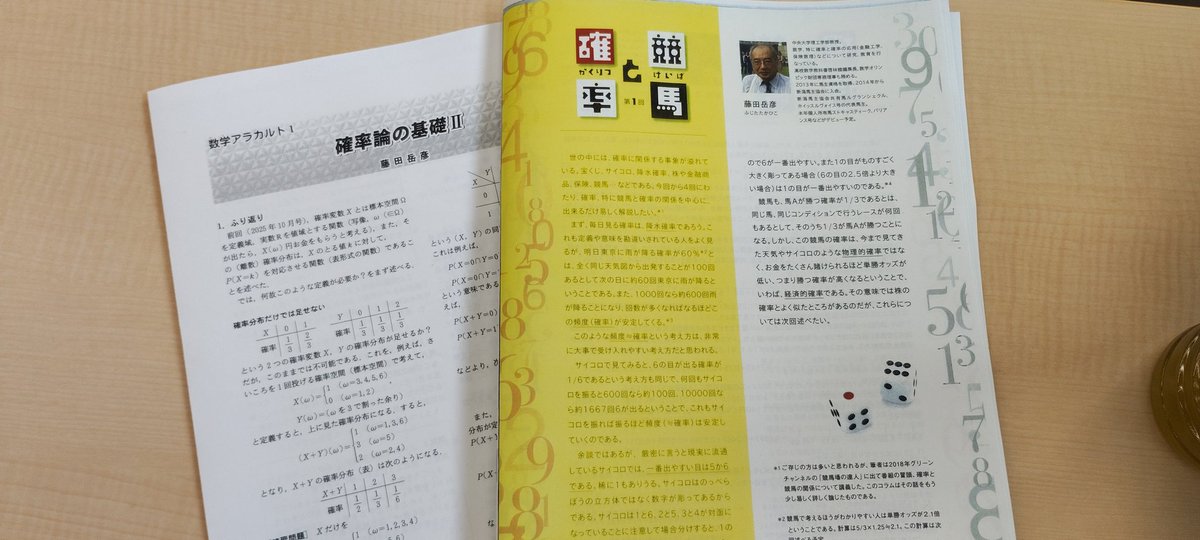 数学アラカルト1
確率論の基礎Ⅱ
藤田岳彦
1. ふり返り
前回(2025年10月号),確率変数Xとは標本空間Ω
を定義域,実数Rを値域とする関数(写像,ω(∈Ω)
が出たら,X(ω)円お金をもらうと考える),また,そ
の(離散)確率分布は,Xのとる値kに対して,
P(X=k)を対応させる関数(表形式の関数)であるこ
とを述べた.
では,何故このような定義が必要か?をまず述べる.
確率分布だけでは足せない
X 0 1
確率 1/3 2/3
Y 0 1 2
確率 1/3 1/3 1/3
という2つの確率変数X,Yの確率分布が足せるか?
だが,このままでは不可能である.これを,例えば,さ
いころを1回投げる確率空間(標本空間)で考えて,
X(ω)={1 (ω=3,4,5,6)
0 (ω=1,2)
Y(ω)=(ωを3で割った余り)
と定義すると,上に見た確率分布になる.すると,
(X+Y)(ω)={1 (ω=1,3,6)
3 (ω=5)
2 (ω=2,4)
となり,X+Yの確率分布(表)は次のようになる.
X+Y 1 2 3
確率 1/2 1/3 1/6
Xだけを
(ω=1,2,3,4)
X Y
0
1
という(X,Y)の同
これは例えば,
P(X=0∩Y=0
P(X=0∩Y=
という意味である
えば,
P(X+Y=0)
P(X+Y=1
などより,
また,
分布が定
P(X+1
P(X
な
確率と競馬
かくりつ
けいば
第1回
中央大学理工学部教授。
数学、特に確率と確率の応用(金融工学、
保険数理)などについて研究、教育を行
なっている。
高校数学教科書啓林館編集長、数学オリン
ピック財団専務理事も務める。
2013年に馬主資格を取得、2014年から
新潟馬主協会に入会。
新潟馬主協会共有馬ルグランシェクル、
ホイッスルヴォイス号の代表馬主。
本年個人所有馬ストキャスティーク、バリア
ンス号などがデビュー予定。
藤田岳彦
ふじたたかひこ
世の中には、確率に関係する事象が溢れて
いる。宝くじ、サイコロ、降水確率、株や金融商
品、保険、競馬…などである。今回から4回にわ
たり、確率、特に競馬と確率の関係を中心に、
出来るだけ易しく解説したい。*1
まず、毎日見る確率は、降水確率であろう。こ
れも定義や意味を勘違いされている人をよく見
るが、明日東京に雨が降る確率が60%*2と
は、全く同じ天気図から出発することが100回
あるとして次の日に約60回東京に雨が降ると
いうことである。また、1000回なら約600回雨
が降ることになり、回数が多くなればなるほどこ
の頻度(確率)が安定してくる。*3
このような頻度≒確率という考え方は、非常
に大事で受け入れやすい考え方だと思われる。
サイコロで見てみると、6の目が出る確率が
1/6であるという考え方も同じで、何回もサイコ
ロを振ると600回なら約100回、10000回な
ら約1667回6が出るということで、これもサイ
コロを振れば振るほど頻度(≒確率)は安定し
ていくのである。
余談ではあるが、厳密に言うと現実に流通
しているサイコロでは、一番出やすい目は5か6
である。稀に1もありうる。サイコロはのっぺら
ぼうの立方体ではなく数字が彫ってあるから
である。サイコロは1と6、2と5、3と4が対面に
なっていることに注意して場合分けすると、1の
ので6が一番出やすい。また1の目がものすごく
大きく彫ってある場合(6の目の2.5倍より大き
い場合)は1の目が一番出やすいのである。*4
競馬も、馬Aが勝つ確率が1/3であるとは、
同じ馬、同じコンディションで行うレースが何回
もあるとして、そのうち1/3が馬Aが勝つことに
なる。しかし、この競馬の確率は、今まで見てき
た天気やサイコロのような物理的確率ではな
く、お金をたくさん賭けられるほど単勝オッズが
低い、つまり勝つ確率が高くなるということで、
いわば、経済的確率である。その意味では株の
確率とよく似たところがあるのだが、これらにつ
いては次回述べたい。
*1 ご存じの方は多いと思われるが、筆者は2018年グリーン
チャンネルの「競馬場の達人」に出て番組の冒頭、確率と
競馬の関係について講義した。このコラムはその話をもう
少し易しく詳しく論じたものである。
*2 競馬で考えるほうがわかりやすい人は単勝オッズが2.1倍
ということである。計算は5/3×1.25≒2.1。この計算は次